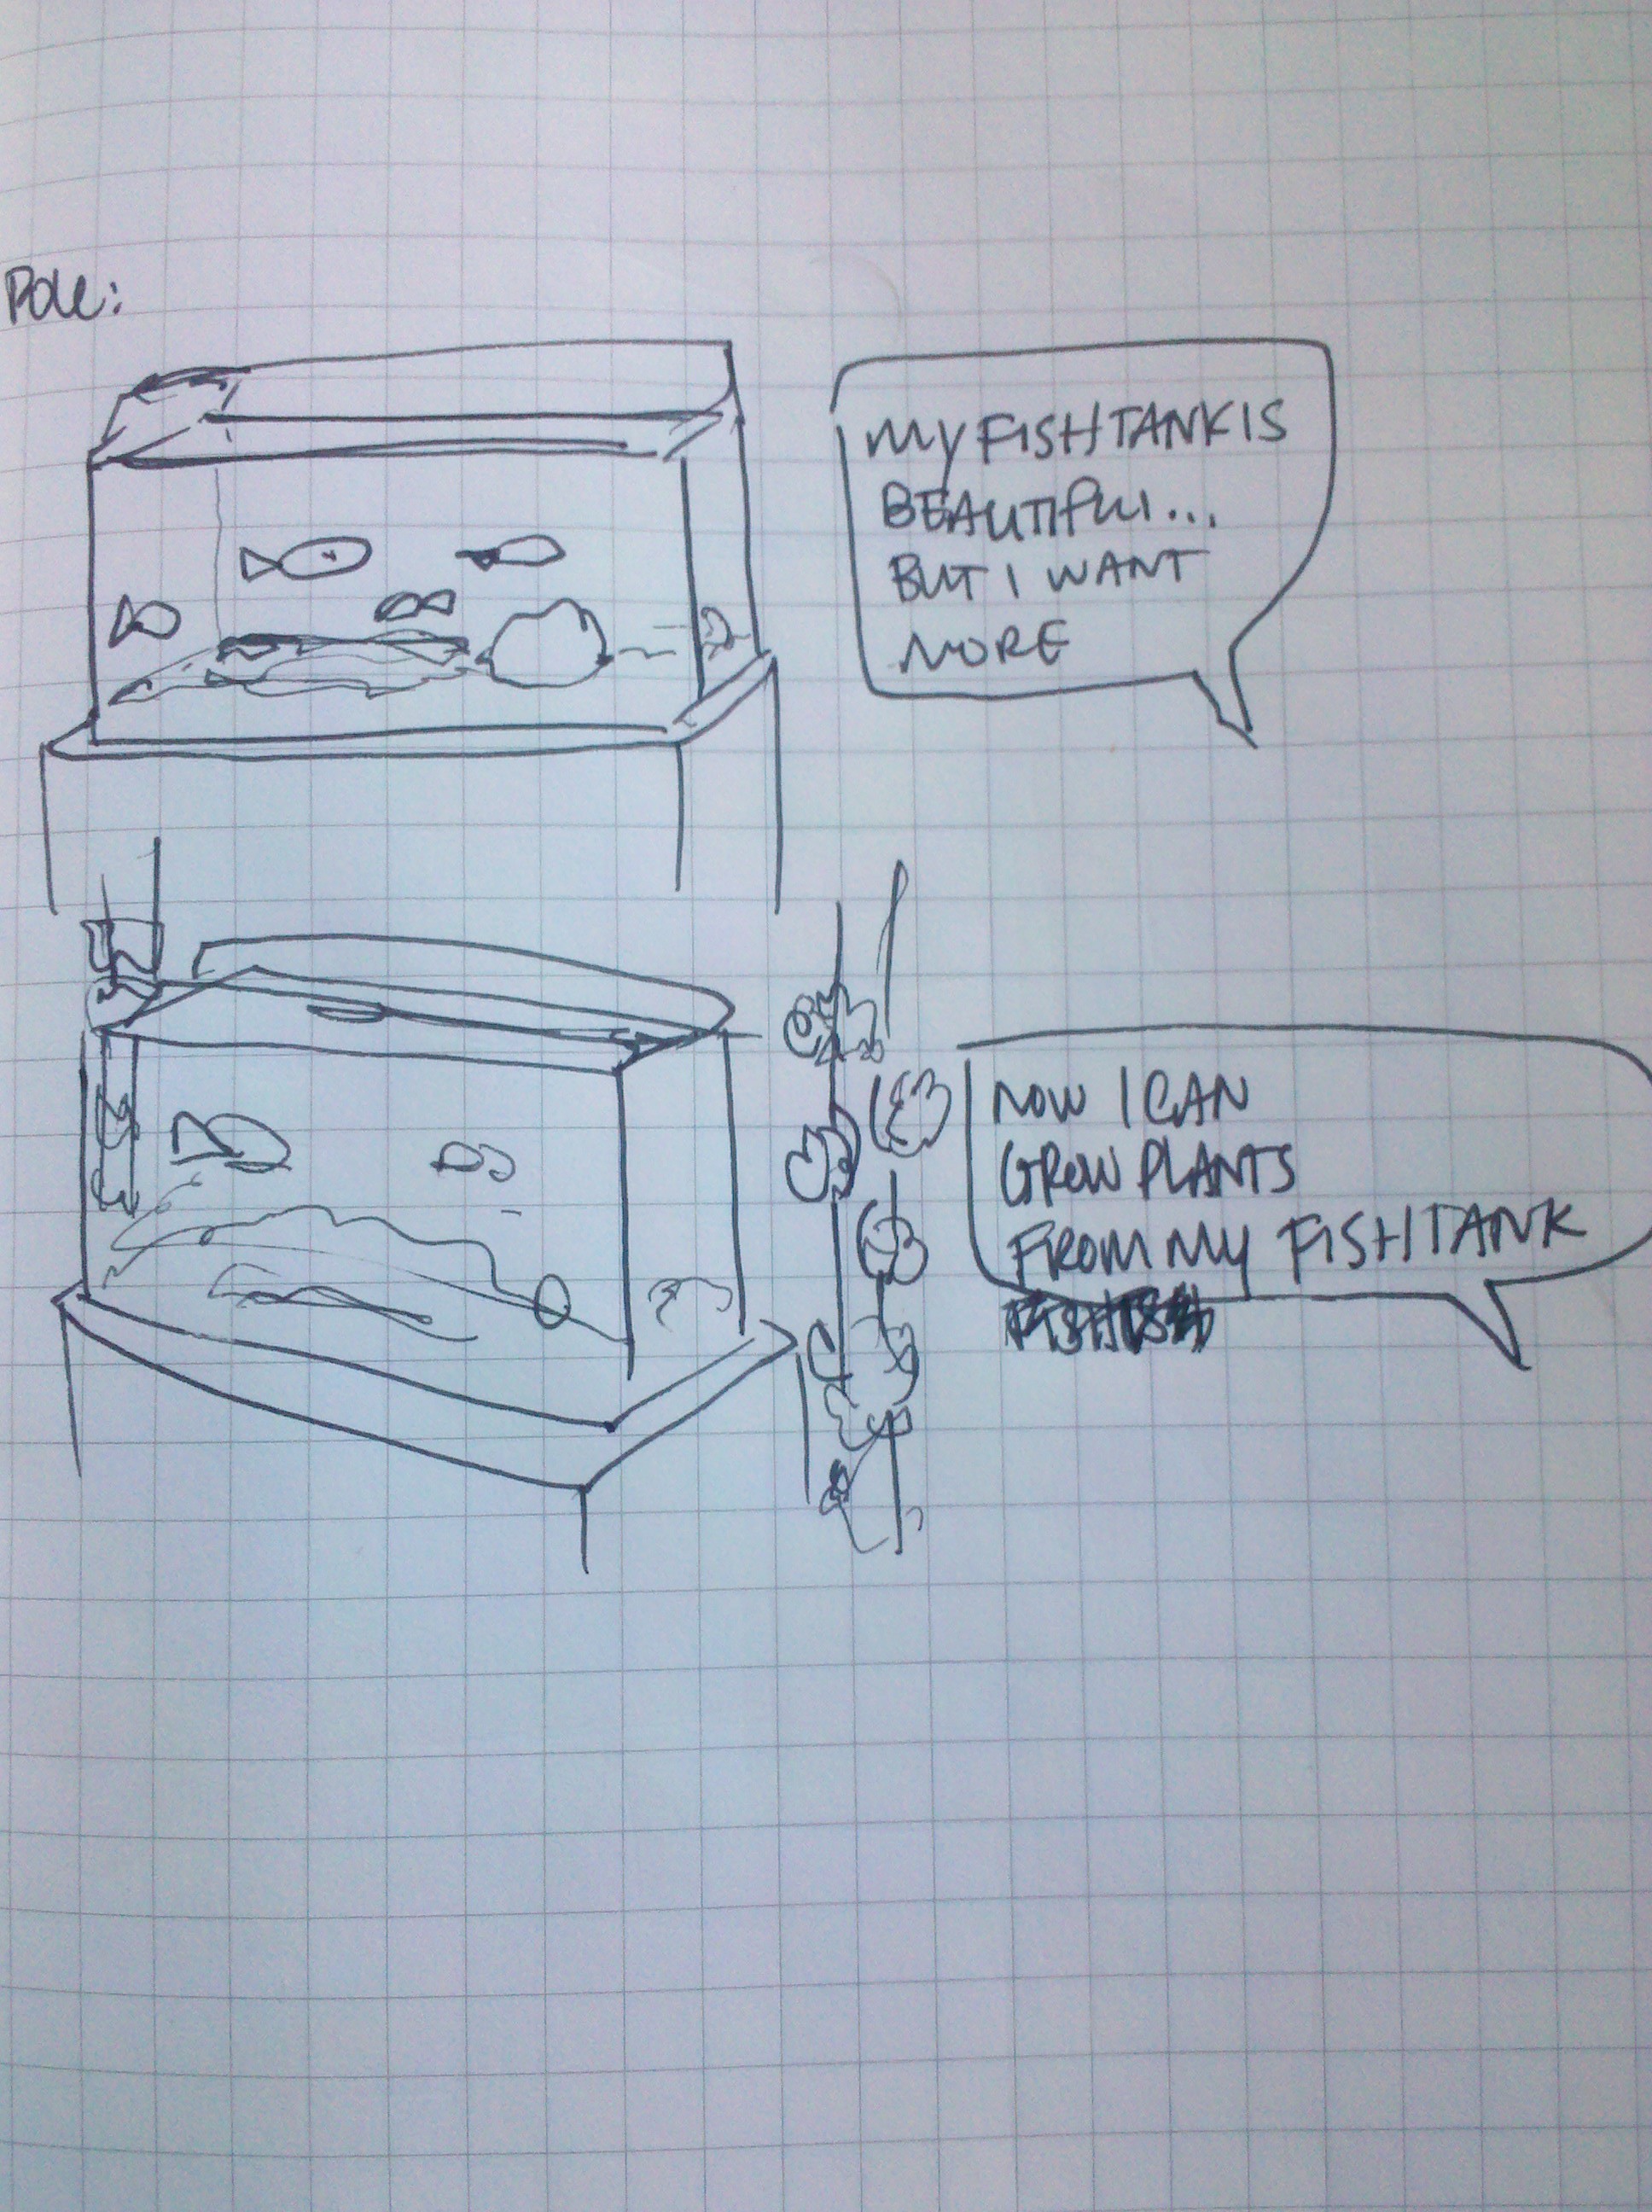 POLE:
MY FISHTANK IS
BEAUTIFUL...
BUT I WANT
MORE
NOW I CAN
GROW PLANTS
FROM MY FISHTANK